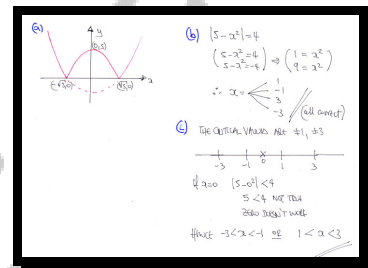 (a)
y
(0,5)
(-√5,0) (√5,0) x
(b) |5-x²|=4
(5-x²=4
5-x²=-4) ⇒ (1=x²
9=x²)
∴ x= 1
-1
3
-3 (all correct)
(c) THE CRITICAL VALUES ARE ±1, ±3
-3 -1 0 1 3
If x=0 |5-0²|<4
5<4 NOT TRUE
ZERO DOESN'T WORK
HENCE -3<x<-1 OR 1<x<3